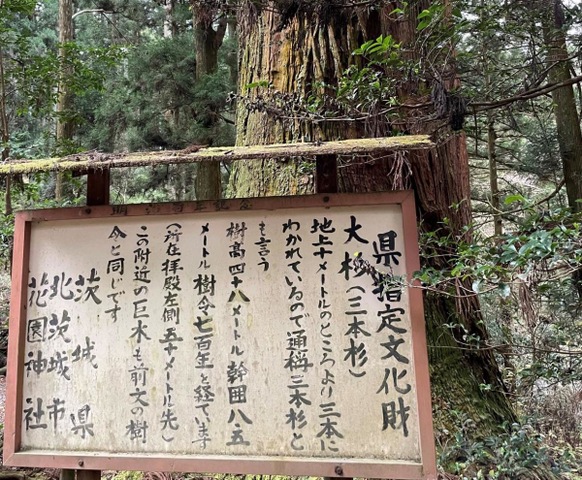 県指定文化財
大杉(三本杉)
地上十メートルのところより三本に
わかれているので通称三本杉と
も言う
樹高四十八メートル 幹囲八・五
メートル 樹令七百年と経ています
(所在拝殿左側五十メートル先)
この附近の巨木も前文の樹
令と同じです
茨城県
北茨城市
花園神社